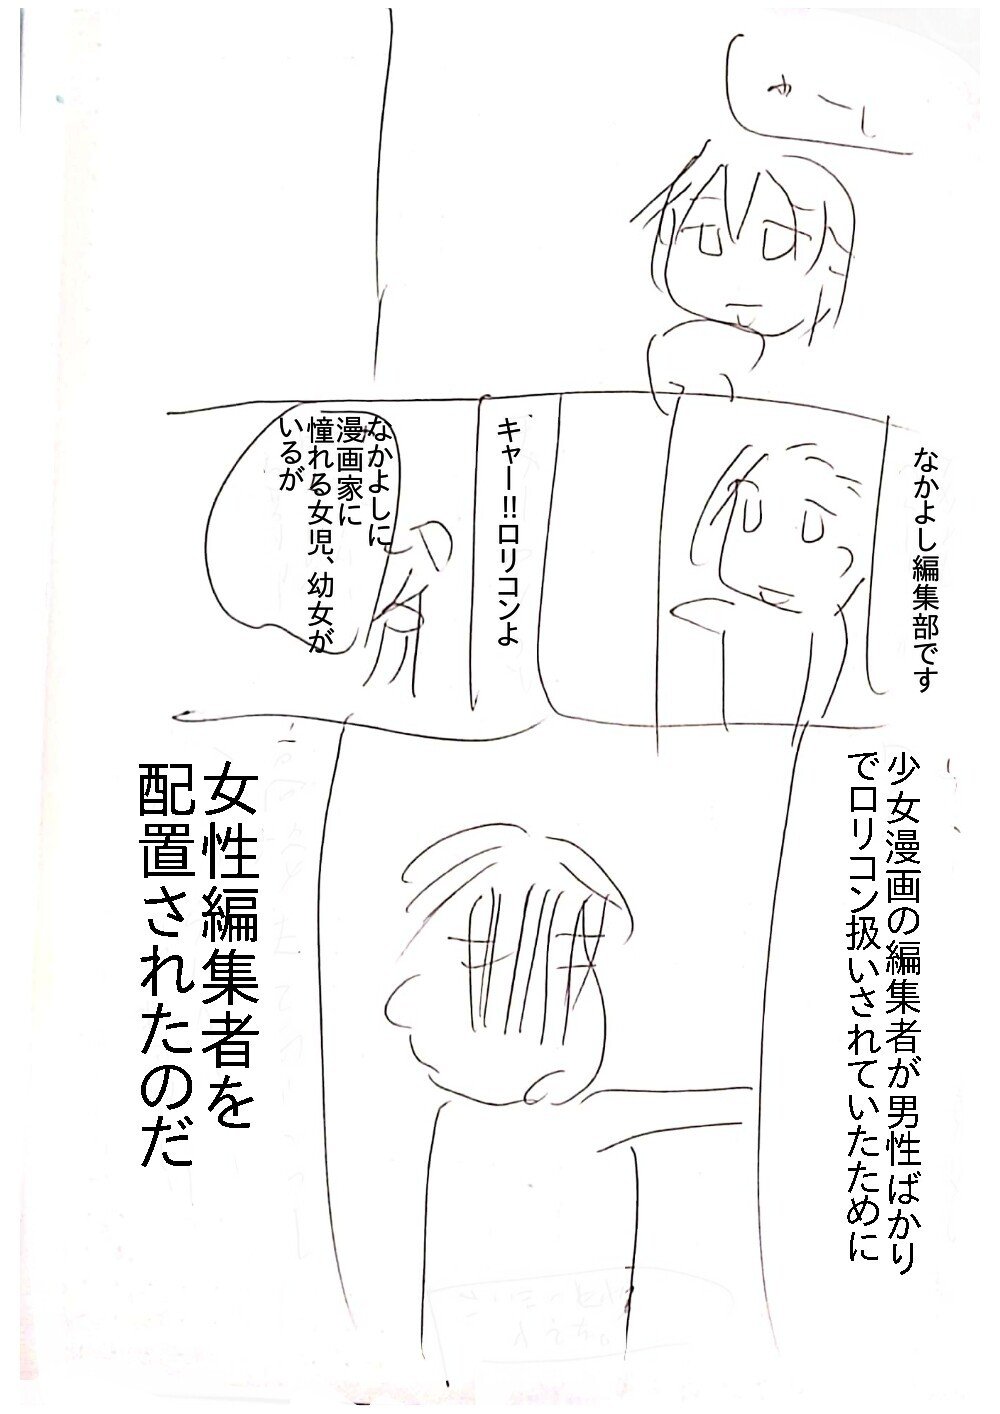 なかよし編集部です
キャー!!ロリコンよ
なかよしに
漫画家に
憧れる女児、幼女が
いるが
少女漫画の編集者が男性ばかり
でロリコン扱いされていたために
女性編集者を
配置されたのだ